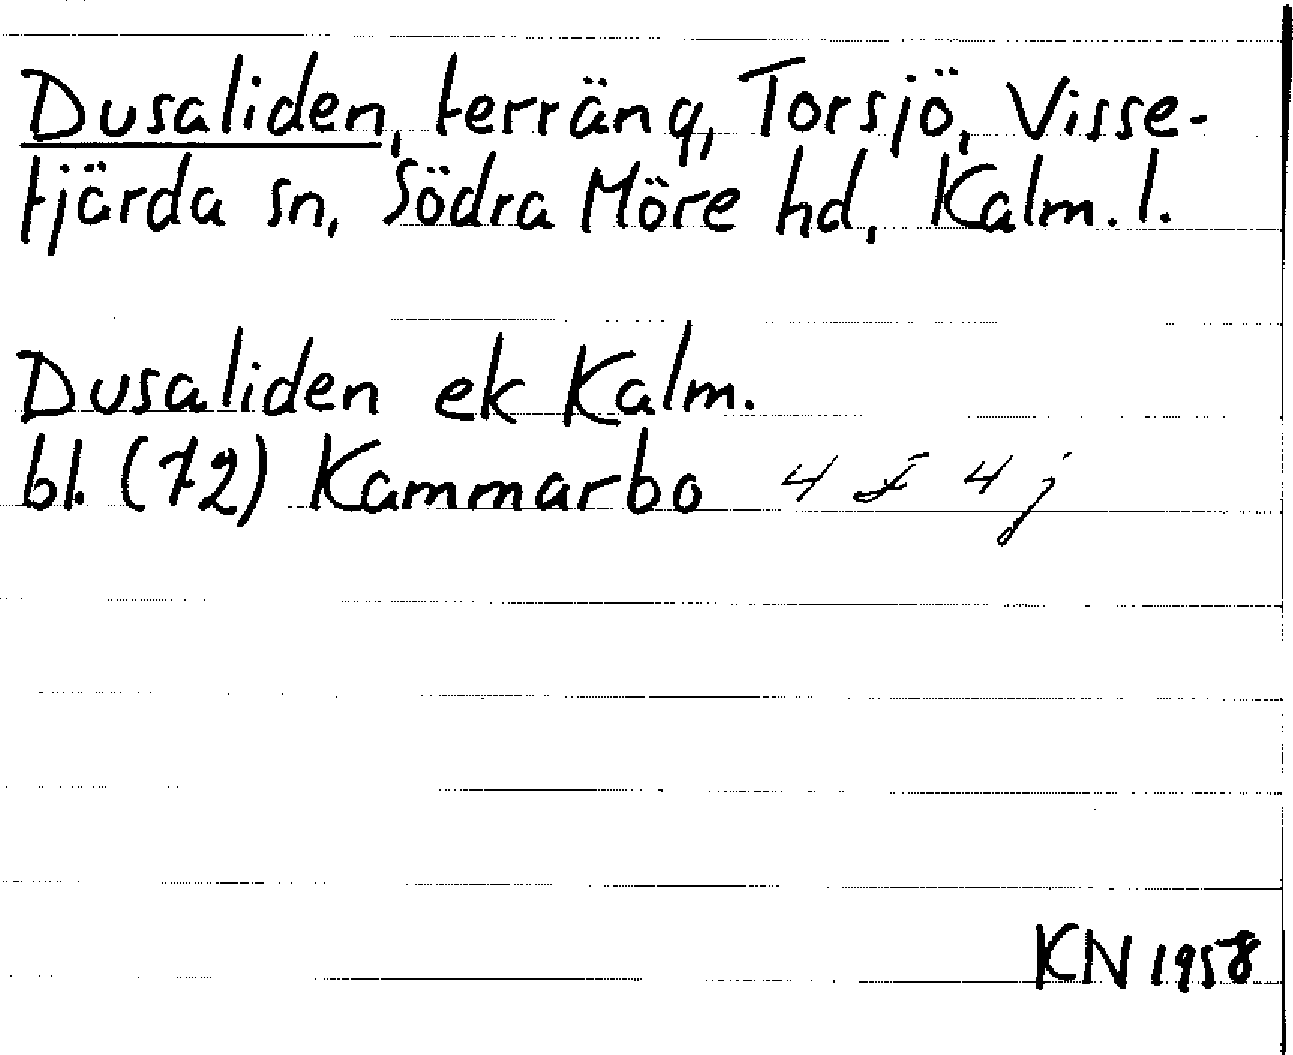 Dusaliden, terräng, Torsjö, Visse-
fjärda sn, Södra Möre hd, Kalm. l.
Dusaliden ek Kalm.
bl. (72) Kammarbo 4 F 4 j
KN 1958